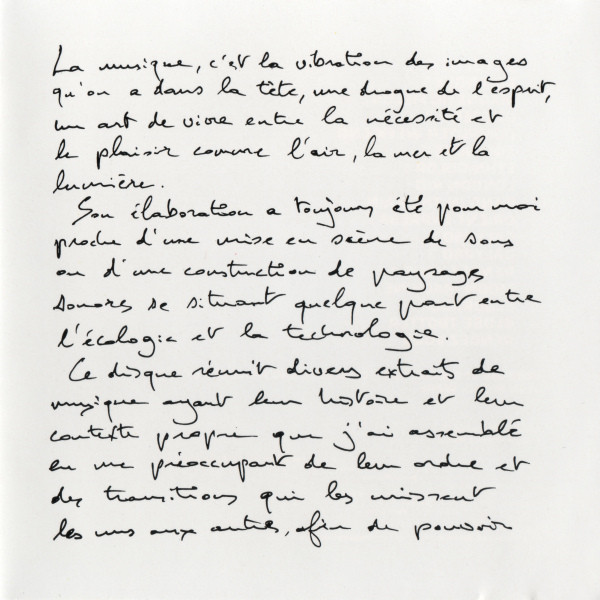 La musique, c'est la vibration des images
qu'on a dans la tête, une drogue de l'esprit,
un art de vivre entre la nécessité et
le plaisir comme l'air, la mer et la
lumière.
Son élaboration a toujours été pour moi
proche d'une mise en scène de sons
ou d'une construction de paysages
sonores se situant quelque part entre
l'écologie et la technologie.
Ce disque réunit divers extraits de
musique ayant leur histoire et leur
contexte propre que j'ai assemblé
en me préoccupant de leur ordre et
des transitions qui les unissent
les uns aux autres, afin de pouvoir